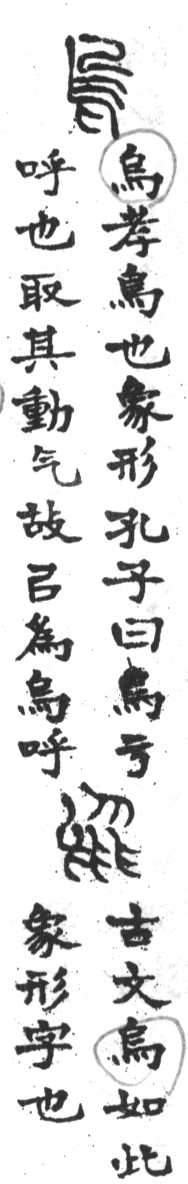 烏
烏孝烏也象形孔子曰烏亏
呼也取其動气故㠯為烏呼
古文烏如此
象形字也